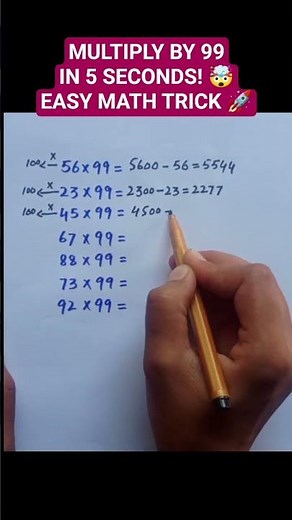 MULTIPLY BY 99
IN 5 SECONDS! 🤯
EASY MATH TRICK 🚀
100 ← x 56 × 99 = 5600 - 56 = 5544
100 ← x 23 × 99 = 2300 - 23 = 2277
100 ← x 45 × 99 = 4500 -
67 × 99 =
88 × 99 =
73 × 99 =
92 × 99 =